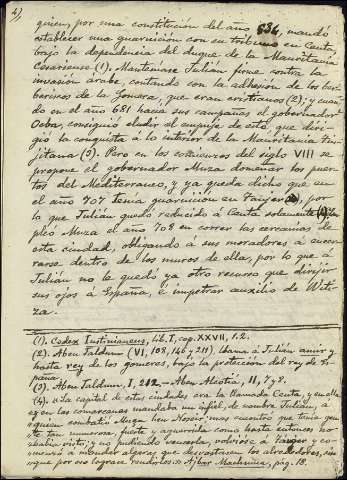 2)
quien, por una constitución del año 534, mandó
establecer una guarnición con su tribuno en Ceuta,
bajo la dependencia del duque de la Mauritania
Cesariense (1). Mantúvose Julián firme contra la
invasión árabe, contando con la adhesión de los ber-
beriscos de la Gomara, que eran cristianos (2); y cuan-
do en el año 681 hacía sus campañas el gobernador
Ocba, consiguió eludir el empuje de éste, que diri-
gió la conquista á lo interior de la Mauritania Tin-
jitana (3). Pero en los comienzos del siglo VIII se
propone el gobernador Muza dominar los puer-
tos del Mediterraneo, y ya queda dicho que en
el año 707 tenía guarnición en Tanjer, por
lo que Julián quedó reducido á Ceuta solamente (4). Em-
pleó Muza el año 708 en correr las cercanías de
esta ciudad, obligando á sus moradores á ence-
rrarse dentro de los muros de ella, por lo que á
Julián no le quedó ya otro recurso que dirijir
sus ojos á España, é impetrar auxilio de Witi-
za.
(1). Codex Iustinianeus, Lib. I, cap. XXVII, l. 2.
(2). Aben Jaldum (VI, 108, 146 y 211) llama á Julián amir y
hasta rey de los gomeres, bajo la protección del rey de Es-
paña.
(3). Aben Jaldum, I, 212. – Aben Alatia, II, 7 y 8.
(4). «La capital de estas ciudades era la llamada Ceuta, y en ella
y en las comarcanas mandaba un infiel, de nombre Julián, á
quien combatió Muza ben Nosair; mas encontró que tenía gen-
te tan numerosa, fuerte y aguerrida como hasta entonces no
había visto; y no pudiendo vencerla, volvióse á Tanjer y co-
menzó á mandar algaras que devastasen los alrededores, sin
que por eso lograra rendirlos.» Ajbar Machmua, pag. 18.